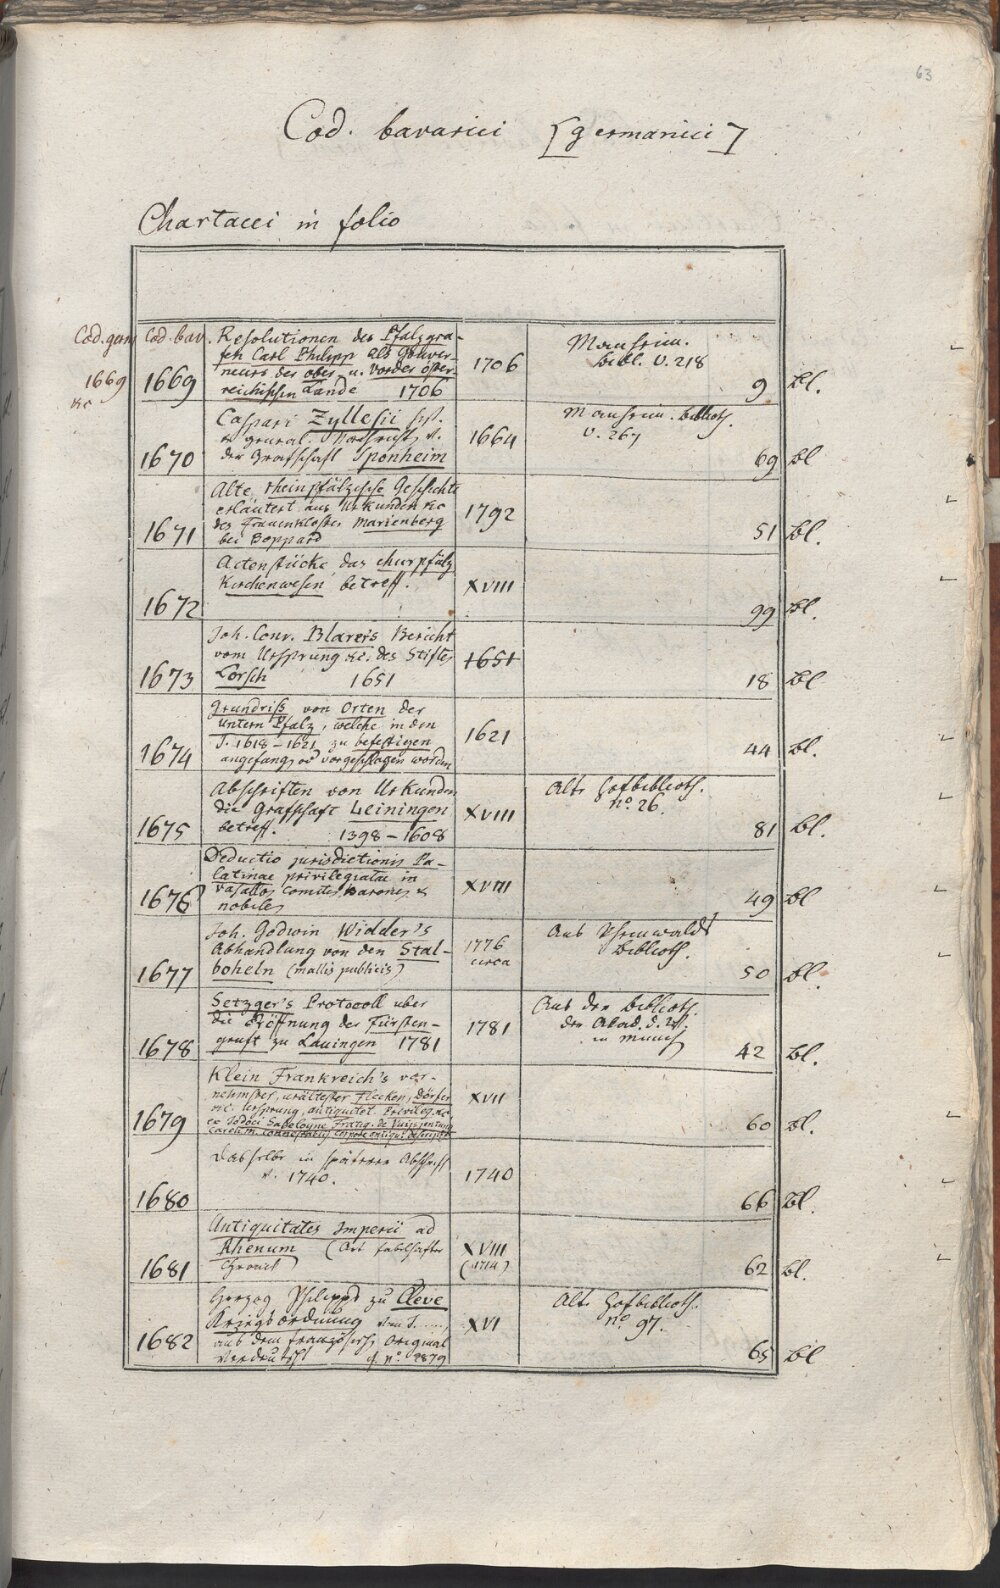 63
Cod. bavarici [germanici]
Chartacei in folio
Cod. germ
1669
&c
Cod. bav.
1669
Resolutionen des Pfalzgra-
fen Carl Philipp als Gouver-
neurs der ober- u. vorder öster-
reichischen Lande 1706
1706
Manheim.
bibl. V. 218
9 bl.
1670
Caspari Zyllesii
der Grafschaft Sponheim
1664
Manheim. biblioth.
V. 267
69 bl
1671
Alte rheinpfälzische Geschichte
erläutert aus Urkunden &c
des Frauenklosters Marienberg
bei Boppard
1792
51 bl.
1672
Actenstücke das churpfälz
Kirchenwesen betreff.
XVIII
99 bl.
1673
Joh. Conr. Blarers Bericht
vom Ursprung &c. des Stiftes
Lorsch 1651
1651
18 bl
1674
Grundriss von Orten der
untern Pfalz, welche in den
J. 1618-1621 zu befestigen
angefang. od vorgeschlagen worden
1621
44 bl.
1675
Abschriften von Urkunden
die Grafschaft Leiningen
betreff. 1398-1608
XVIII
Alte Hofbiblioth.
no. 26.
81 bl.
1676
Deductio jurisdictionis Pa-
latinae privilegiatae in
vasallos comites Barones &
nobiles
XVIII
49 bl
1677
Joh. Godwin Widder's
Abhandlung von den Stal-
boheln (mallis publicis)
1776
circa
Biblioth.
50 bl.
1678
Setzger's Protocoll uber
die Eröffnung der Fürsten-
gruft zu Lauingen 1781
1781
Aus der biblioth.
der Akad. d. W.
in Münch
42 bl.
1679
Klein Frankreich's vor-
nehmster, uraltester Flecken, Dörfer
&c. Ursprung, antiquitet. Privileg. &c
XVII
60 bl.
1680
Dasselbe in späterer Abschrift
v. 1740.
1740
66 bl.
1681
Antiquitates Imperii ad
Rhenum (Art fabelhafter
Chronik)
XVIII
(1714)
62 bl.
1682
Herzog Philipps zu Cleve
Kriegsordnung von J. .....,
aus dem französisch. Original
verdeutscht cf. no. 2879
XVI
Alte Hofbiblioth.
no. 97.
65 bl